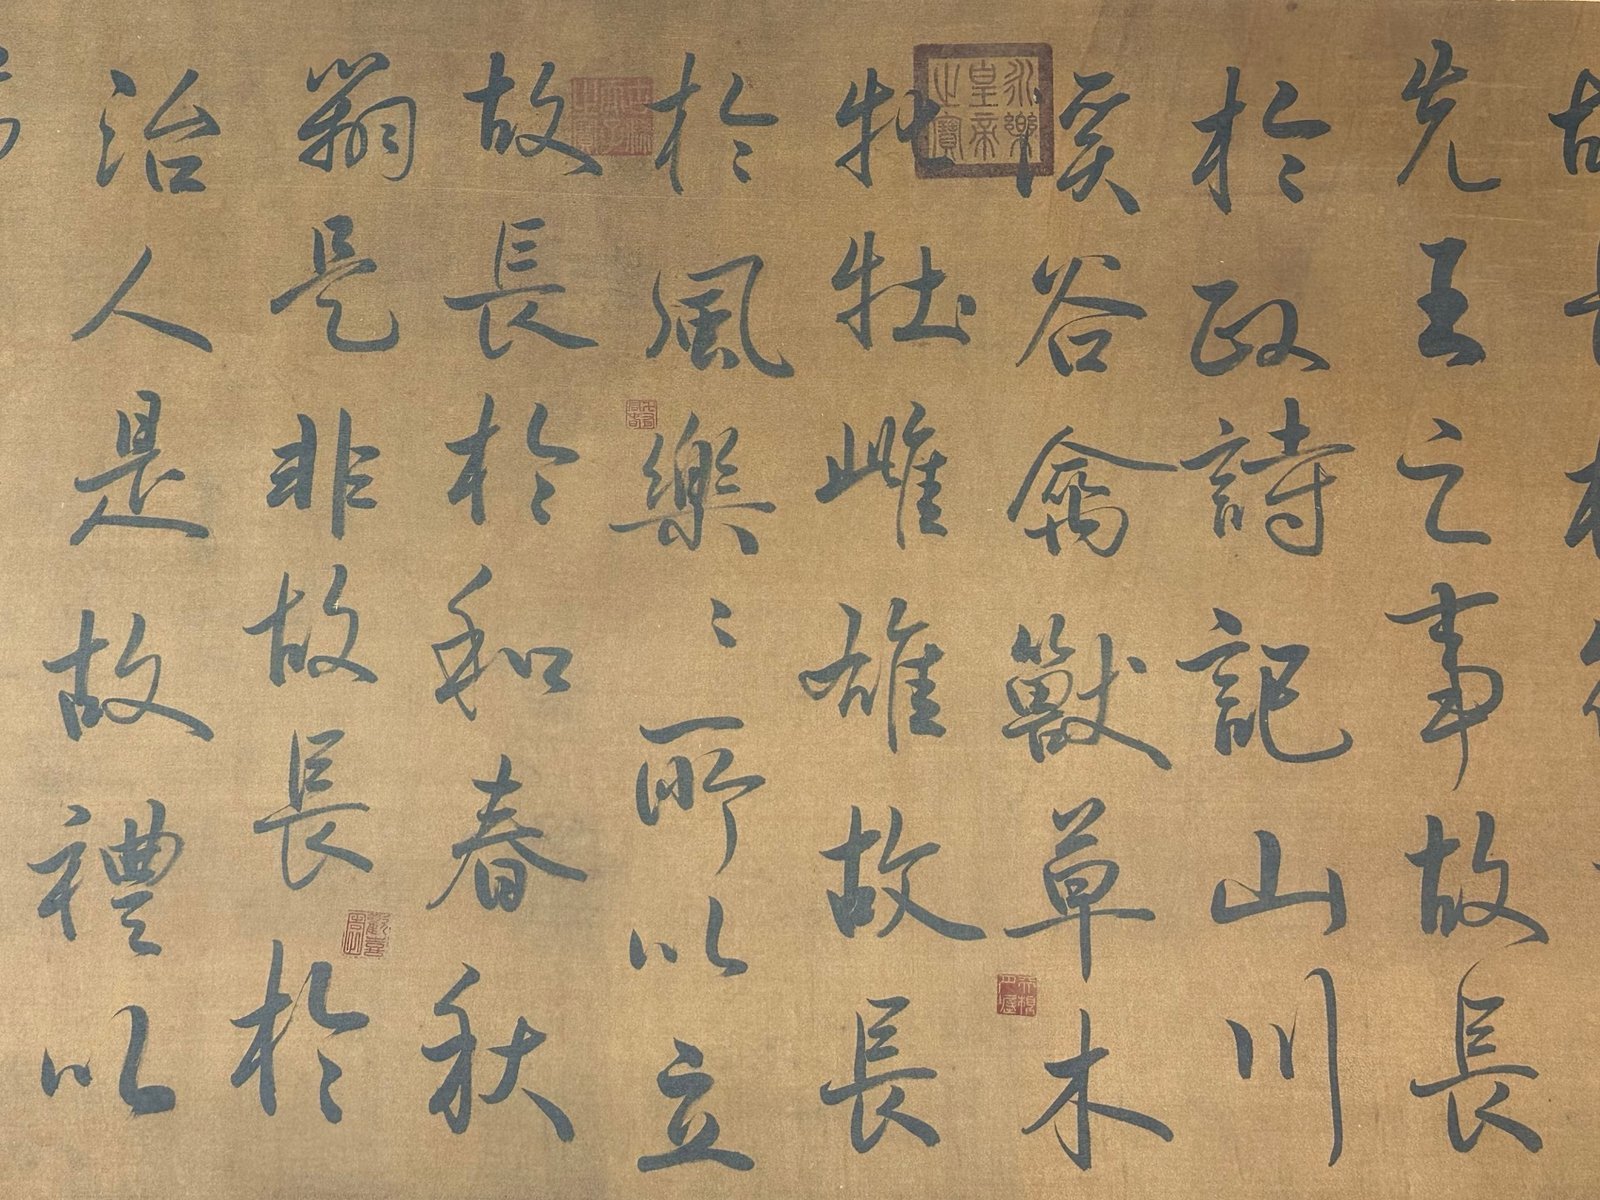 先王之事故長
於政詩記山川
溪谷禽獸草木
牝牡雌雄故長
於風樂〻所以立
故長於和春秋
辯是非故長於
治人是故禮以
永樂皇帝之寶